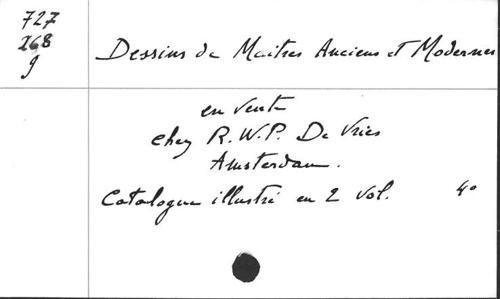 727
268
g
Dessins de Maitres Anciens et Modernes
en vente
chez R.W.P. De Vries
Amsterdam.
Catalogue illustré en 2 vol. 4°